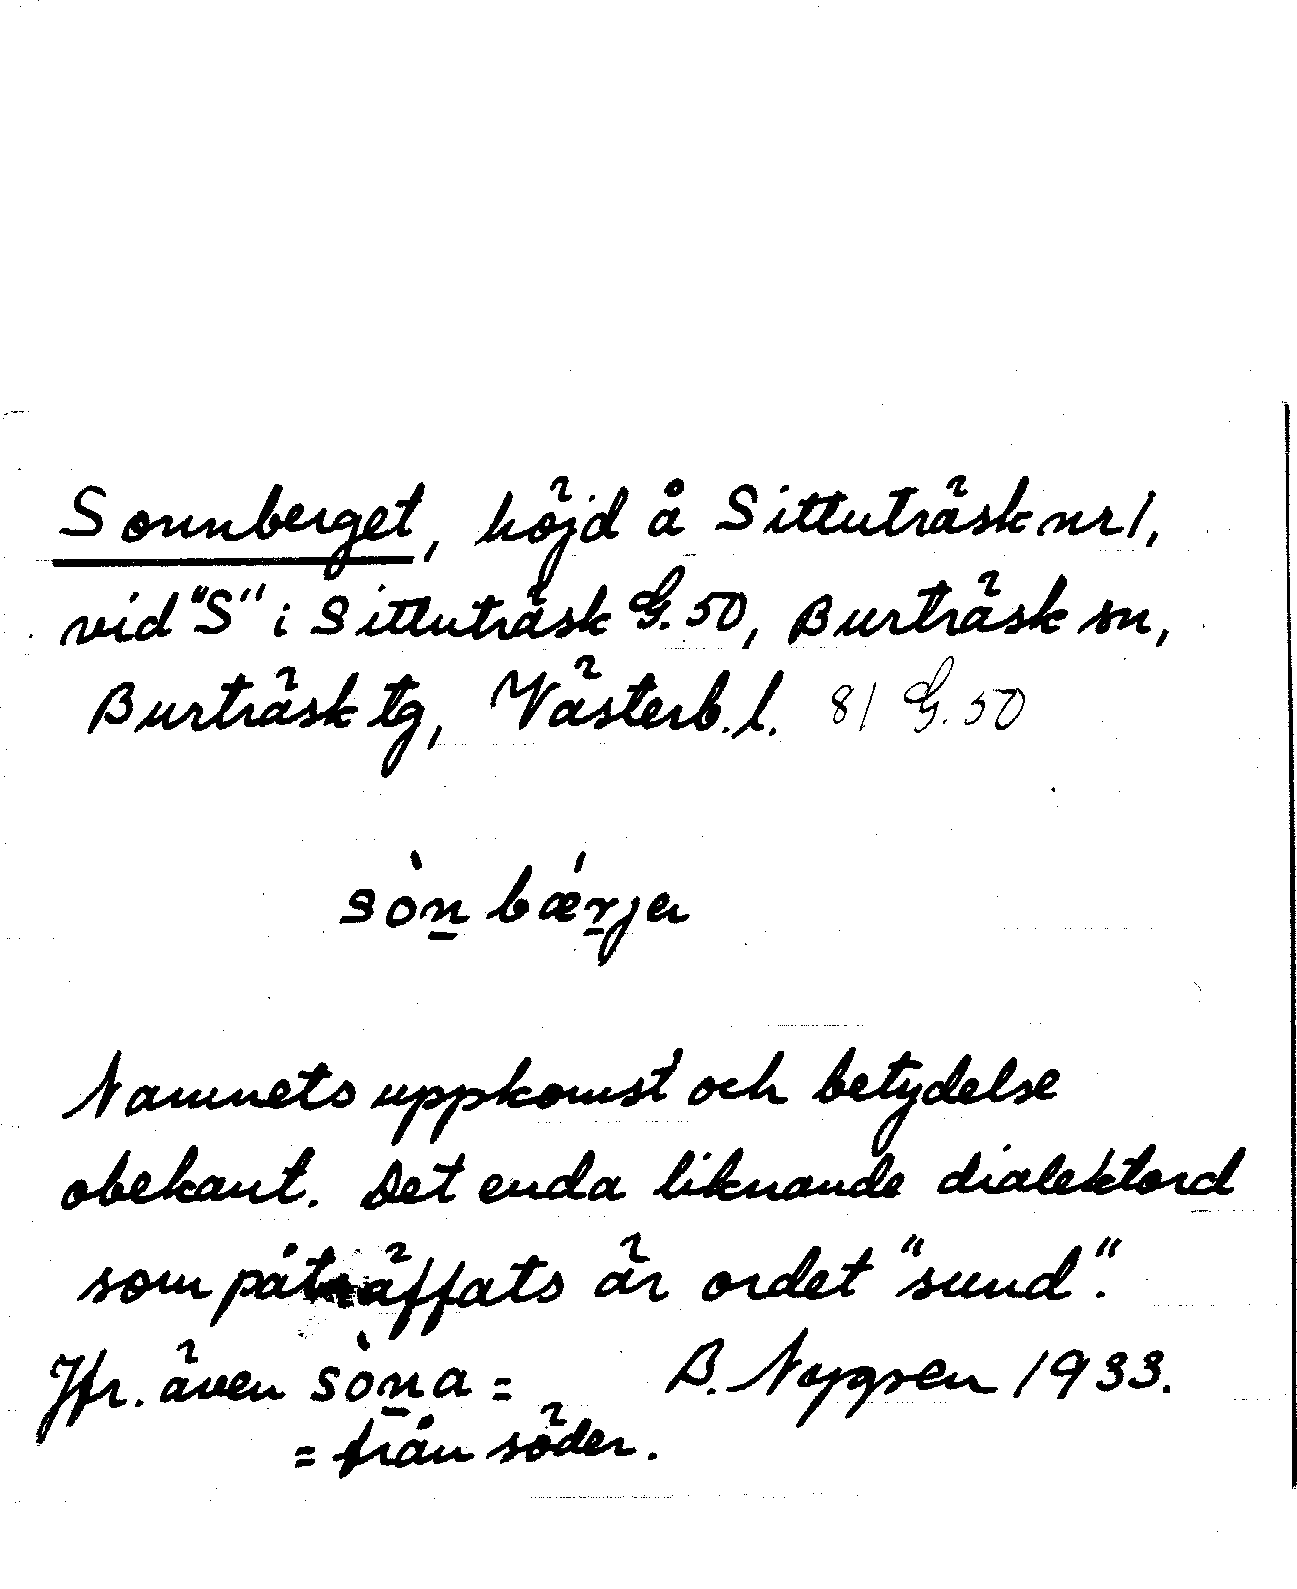 Sonnberget, höjd å Sittuträsk nr 1,
vid "S" i Sittuträsk G. 50, Burträsk sn,
Burträsk tg, Västerb. l. 81 G. 50
sòn̲ bǽr̲ja
Namnets uppkomst och betydelse
obekant. Det enda liknande dialektord
som påträffats är ordet "sund".
Jfr. även sòn̲a =
B. Nygren 1933.
= från söder.